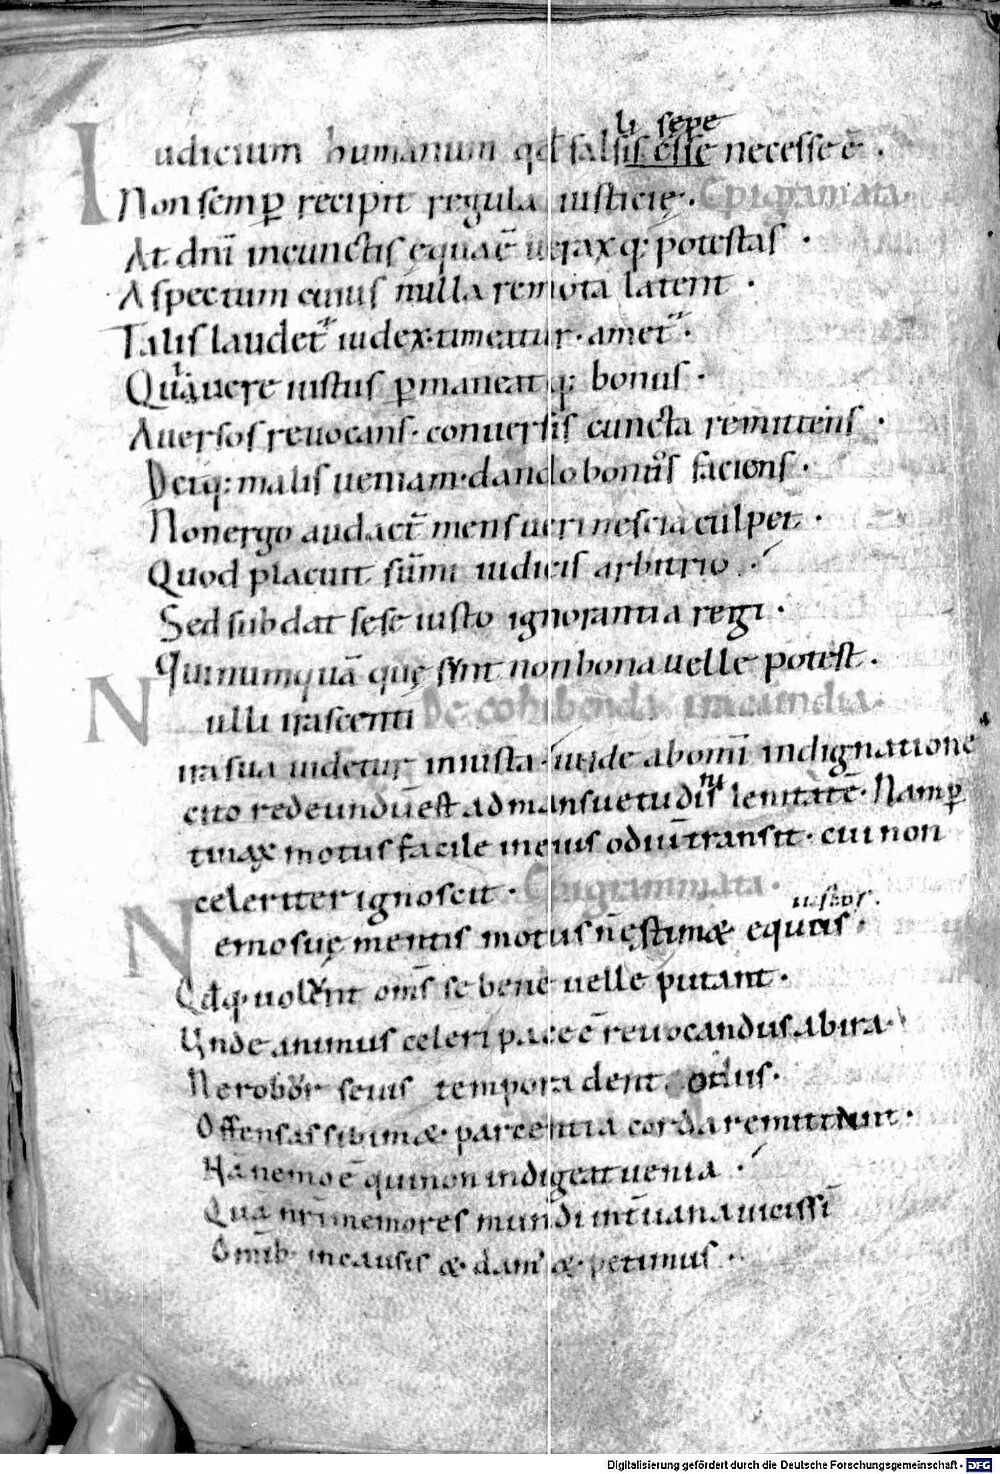 li sepe
Iudicium humanum qđ falsis esse necesse ē .
Non semꝑ recipit regula iusticię . Epigramata .
At dn̄i incunctis ęquaē ueraxq; potestas .
Aspectum cuius nulla remota latent .
Talis laudet᷑ iudex . timeatur . amet᷑ .
Quā uere iustus ꝑmaneat q; bonus .
Auersos reuocans . conuersis cuncta remittens .
Deq; malis ueniam . dando bonos faciens .
Non ergo audact̄ mens ueri nescia culpet .
Quod placuit sūmi iudicis arbitrio .
Sed subdat sese iusto ignorantia regi .
Qui numquā quę sunt non bona uelle potest .
Nulli irascenti De cohibenda iracundia .
ira sua uidetur iniusta . unde ab omī indignatione
cito redeundū est ad mansuetudinis lenitatē . Nam ꝑ
tinax motus facile in eius odiū transit . cui non
celeriter ignoscit . Epigrammata .
iustos .
Nemo suę mentis motus n̄ ęstimæ equus .
Qđq; uolunt om̄s se bene uelle putant .
Unde animus celeri pace ē reuocandus abira .
Ne robor seuis tempora dent odiis .
Offensas sibimæ . parcentia corda remittunt .
Nā nemo ē qui non indigeat uenia .
Quā nr̄i memores mundi
Om̄ib incausis æ . dam æ . petimus .
Digitalisierung gefördert durch die Deutsche Forschungsgemeinschaft - DFG